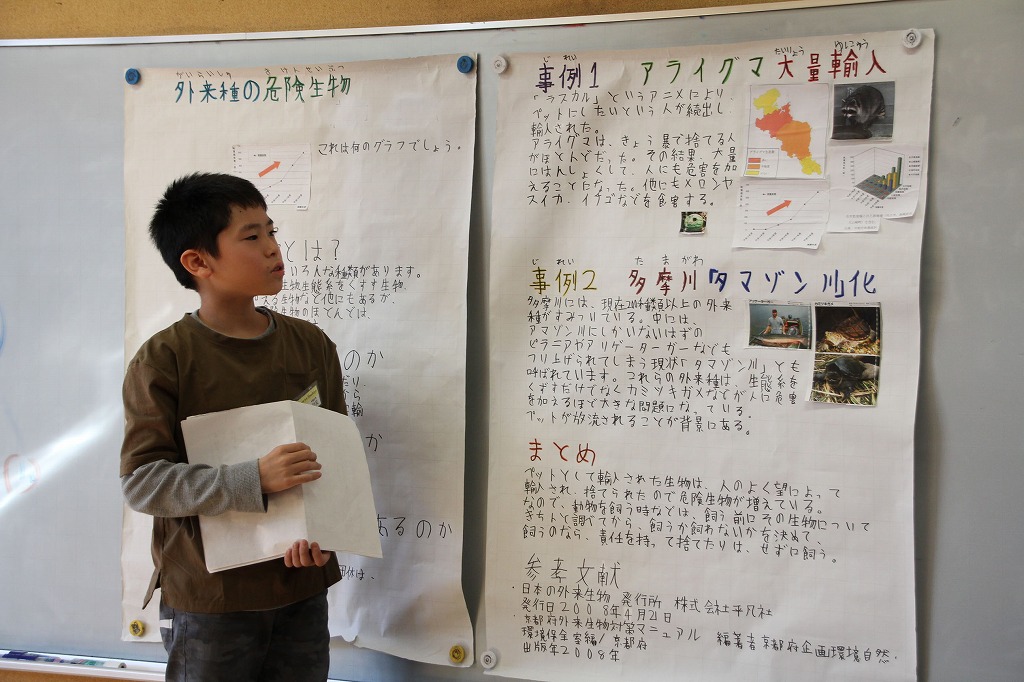 がいらいしゅ きけんせいぶつ
外来種の危険生物
これは何のグラフでしょう。
とは？
いろんな種類があります。
生物生態系をくずす生物、
える生物など他にもあるが、
生物のほとんどは、
のか
か
あるのか
団体は、
じれい たいりょう ゆにゅう
事例1 アライグマ大量輸入
「ラスカル」というアニメにより、
ペットにしたいという人が続出し、
輸入された。
アライグマは、きょう暴で捨てる人
がほとんどだった。その結果、大量
にはんしょくして、人にも危害を加
えることになった。他にもメロンや
スイカ、イナゴなどを食害する。
じれい たまがわ
事例2 多摩川「タマゾン川」化
多摩川には、現在200種類以上の外来
種がすみついている。中には、
アマゾン川にしかいないはずの
ピラニアやアリゲーターガーなども
つり上げられてしまう現状「タマゾン川」とも
呼ばれています。これらの外来種は、生態系を
くずすだけでなくカミツキガメなどが人に危害
を加えるほど大きな問題になっている。
ペットが放流されることが背景にある。
まとめ
ペットとして輸入された生物は、人のよく望によって
輸入され、捨てられたので危険生物が増えている。
なので、動物を飼う時などは、飼う前にその生物について
きちんと調べてから、飼うか飼わないかを決めて、
飼うのなら、責任を持って捨てたりは、せずに飼う。
参考文献
・日本の外来生物 発行所 株式会社平凡社
発行日2008年4月21日
・京都府外来生物対策マニュアル 編著者京都府企画環境自然
環境保全室編/京都府
出版年2008年